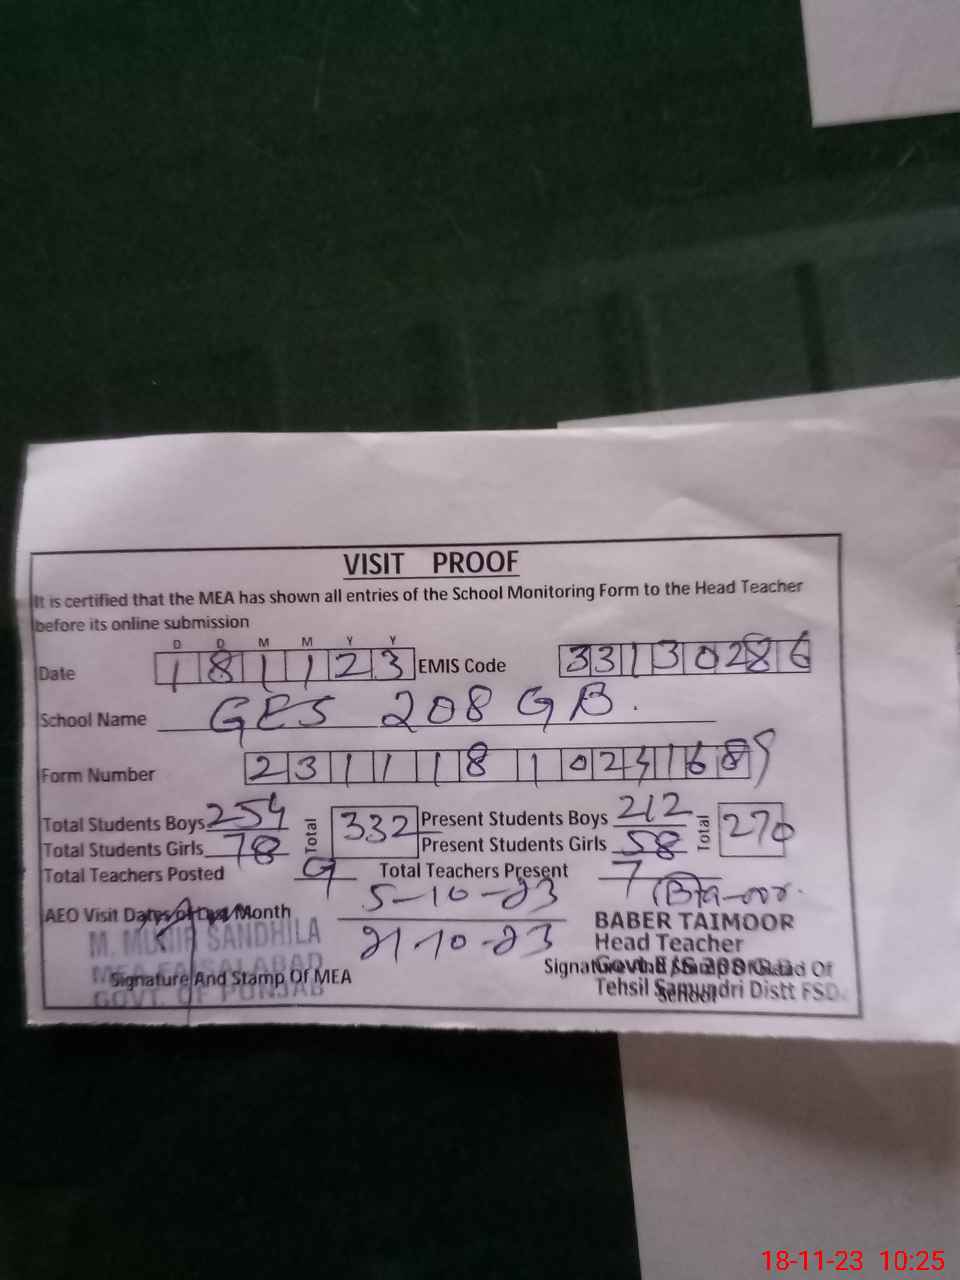 VISIT PROOF
It is certified that the MEA has shown all entries of the School Monitoring Form to the Head Teacher
before its online submission
D D M M Y Y
Date 181123 EMIS Code 33130286
School Name GES 208 GB.
Form Number
Total Students Boys 254 Total 332 Present Students Boys 212 Total 270
Total Students Girls 78 Present Students Girls 58
Total Teachers Posted 9 Total Teachers Present 7
AEO Visit Dates of Month 5-10-23
21-10-23
M. MUNIR SANDHILA
MEA FAISALABAD
GOVT. OF PUNJAB
Signature And Stamp Of MEA
BABER TAIMOOR
Head Teacher
Govt. E/S 208 G.B
Tehsil Samundri Distt FSD.
Of
School
18-11-23 10:25